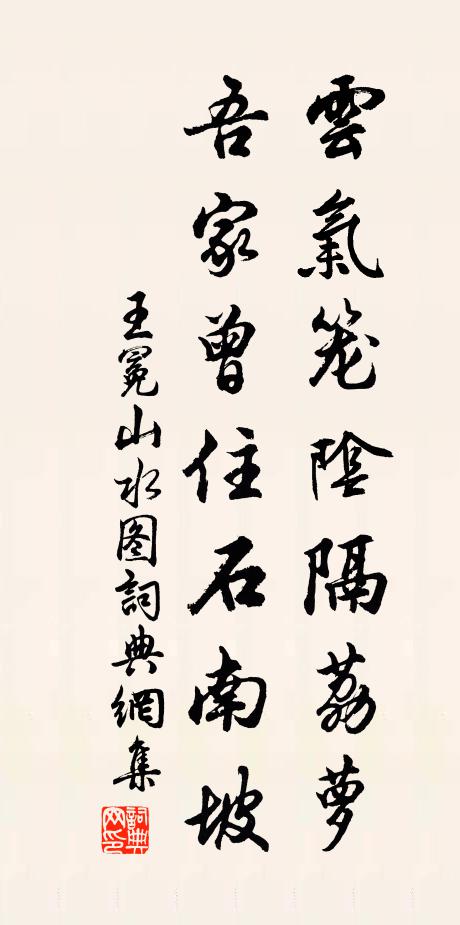 雲氣笼陰隔荔萝
吾家曾住石南坡
王冕山水图詞典網集
詞典网印